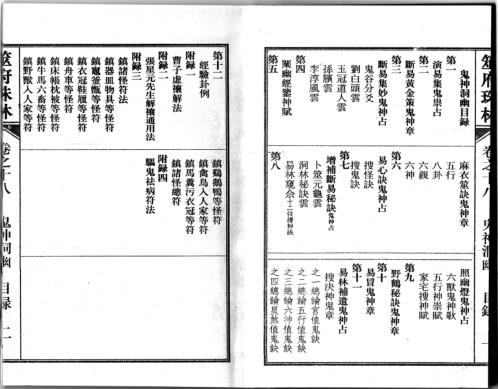 筮府珠林 卷之十八 鬼神洞幽 目錄 一
鬼神洞幽目錄
第一
演易集鬼祟占
第二
斷易黃金策鬼神章
第三
斷易集妙鬼神占
鬼谷分爻
劉白頭雲
玉冠道人雲
孫臏雲
李淳風雲
第四
闡幽經鑒神賦
第五
麻衣筮訣鬼神章
五行
八卦
六親
六神
第六
易心訣鬼神占
搜怪訣
搜鬼訣
第七
增補斷易秘訣鬼神占
卜筮元龜雲
洞林秘訣雲
易林 十二位搜神訣
第八
照幽燈鬼神占
六獸鬼神歌
五行神祟賦
家宅搜神賦
第九
野鶴秘訣鬼神章
第十
易冒鬼神章
第十一
易林補遺鬼神占
搜決神鬼章
之一總論宮值鬼訣
之二總論五行值鬼訣
之三總論六神值鬼訣
之四總論星煞值鬼訣
第十二
經驗卦例
附錄一
曹子虛禳解法
附錄二
張星元先生解禳通用法
附錄三
鎮諸怪符法
鎮器皿物具等怪符
鎮竈釜甑等怪符
鎮衣冠鞋履等怪符
鎮舟車等怪符
鎮床帳枕被等怪符
鎮牛馬六畜等怪符
鎮野獸入人家等怪符
鎮鷄鵝鴨等怪符
鎮禽鳥入人家等符
鎮馬糞污衣冠等符
鎮諸怪總符
附錄四
驅鬼祛病符法
筮府珠林 卷之十八 鬼神洞幽 目錄 二